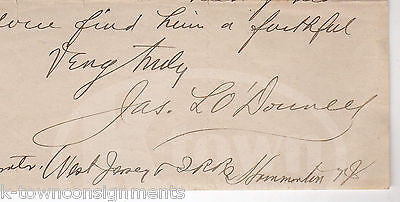 find him a faithful
Very truly
Jas. L O'Donnell
West Jersey & S R R Hammonton NJ
k-townconsignments